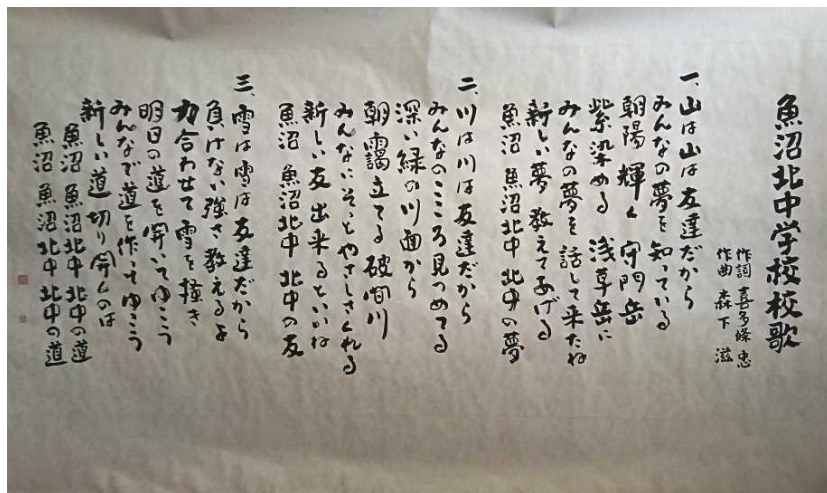 魚沼北中学校校歌
作詞 喜多條 忠
作曲 森下 滋
一、山は山は友達だから
みんなの夢を知っている
朝陽 輝く 守門岳
紫染める 浅草岳に
みんなの夢を 話して来たね
新しい夢 教えてあげる
魚沼 魚沼北中 北中の夢
二、川は川は友達だから
みんなのこころ見つめてる
深い緑の川面から
朝靄立てる 破間川
みんなにそっとやさしさくれる
新しい友 出来るといいね
魚沼 魚沼北中 北中の友
三、雪は雪は友達だから
負けない強さ 教えるよ
力合わせて 雪を掻き
明日の道を 開いてゆこう
みんなで道を 作ってゆこう
新しい道 切り開くのは
魚沼 魚沼北中 北中の道
魚沼 魚沼北中 北中の道